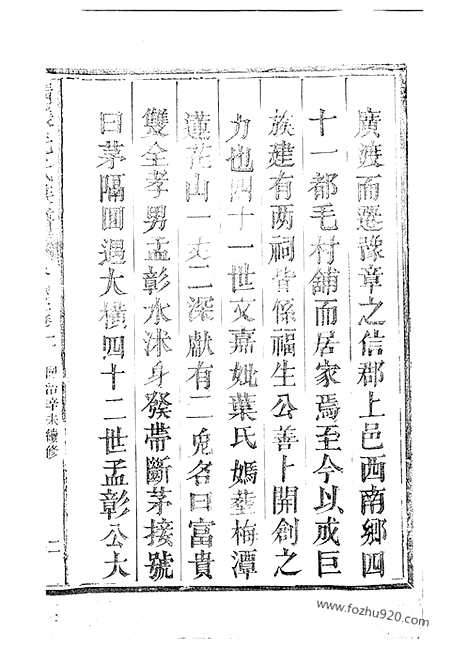 廣渡而遷豫章之信郡上邑西南鄉四
十一都毛村鋪而居家焉至今以成巨
族建有两祠皆係福生公善卜開創之
力也四十一世文嘉妣葉氏媽塟梅潭
蓮花山一丈二深獻有二兎名曰富貴
雙全孝男孟彰水沐身發帶斷茅接號
曰茅隔回遇大橫四十二世孟彰公大
同治辛未續修
二
www.fozhu920.com